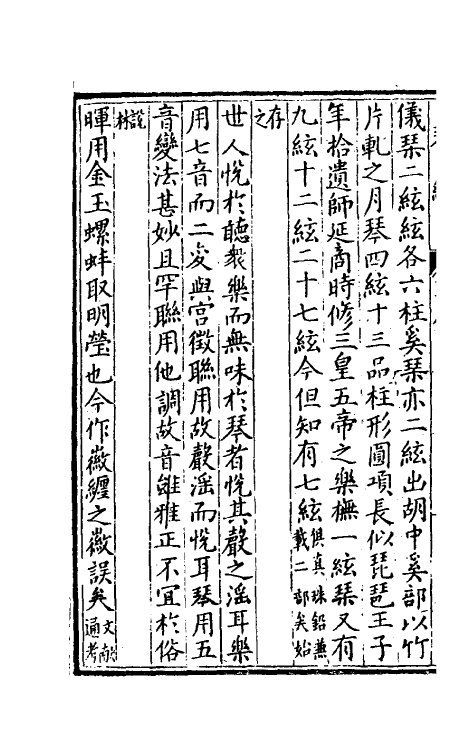 儀琹二絃絃各六柱奚琹亦二絃出胡中奚部以竹
片軋之月琴四絃十三品柱形圓項長似琵琶王子
年拾遺師延商時修三皇五帝之樂撫一絃琹又有
九絃十二絃二十七絃今但知有七絃俱真珠船兼載二部矣始
存之
世人悅於聽衆樂而無味於琴者悅其聲之淫耳樂
用七音而二变與宮徵聯用故聲淫而悅耳琴用五
音變法甚妙且罕聯用他調故音雖雅正不宜於俗
說林
暉用金玉螺蚌取明瑩也今作徽纏之徽誤矣文献通考